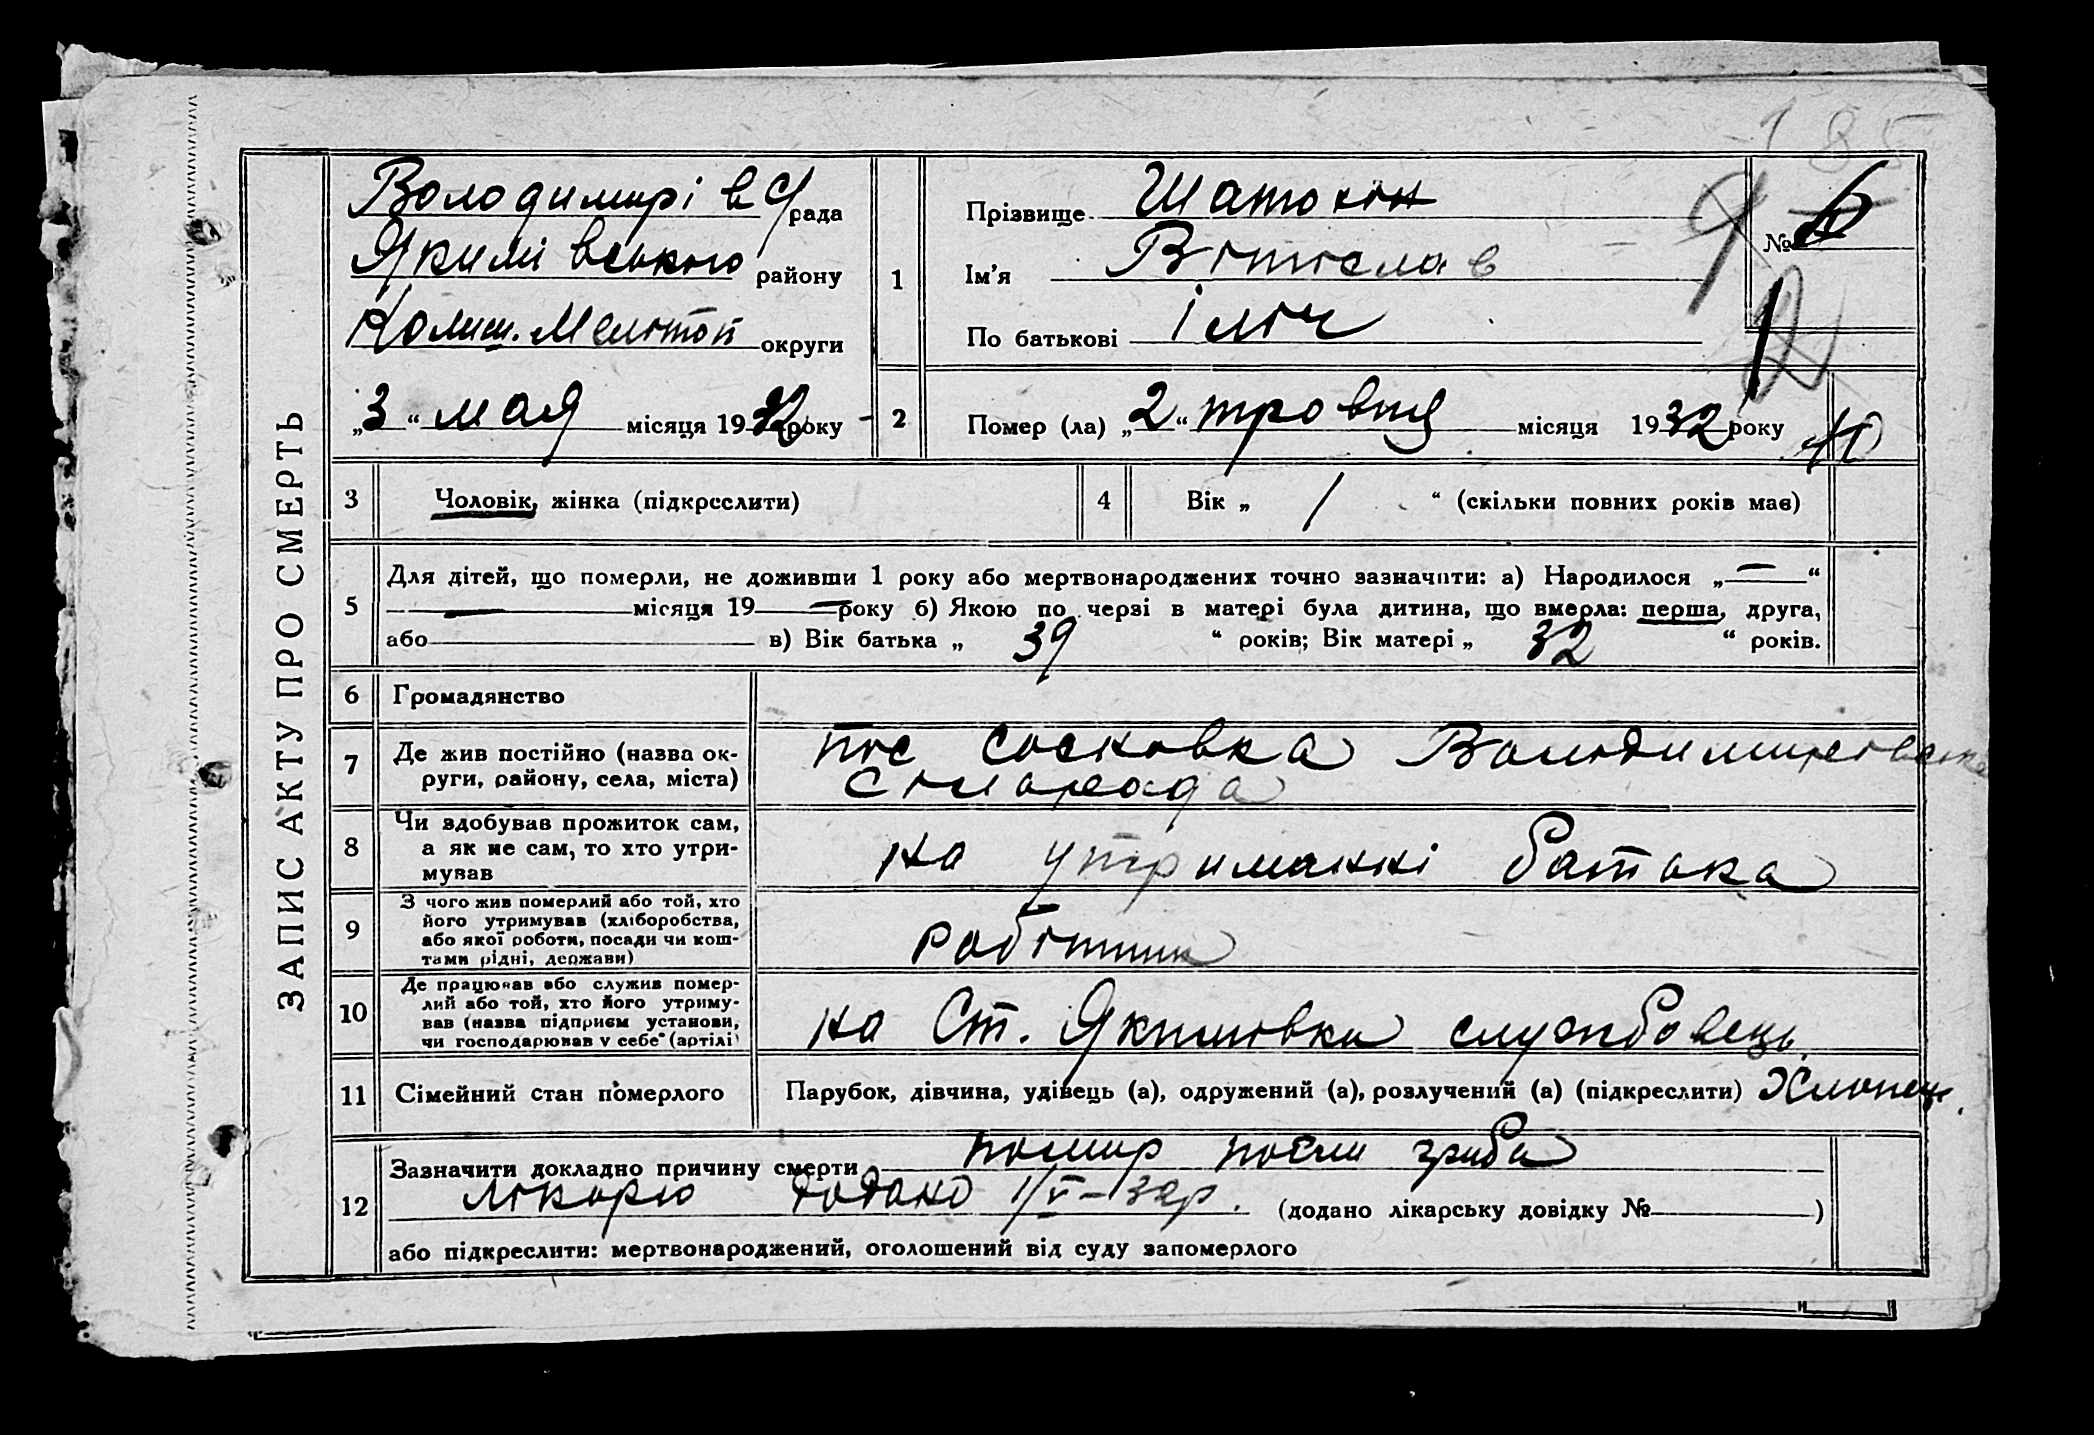 185
ЗАПИС АКТУ ПРО СМЕРТЬ
Володимирів С/рада
Якимівського району
Колиш. Мелітоп округи
„3“ мая місяця 1932 року
1
Прізвище Шатохін
Ім'я
По батькові Іліч
№ 6
2
Помер (ла) „2“ тровня місяця 1932 року
3 Чоловік, жінка (підкреслити)
4 Вік „ 1 “ (скільки повних років має)
5
Для дітей, що померли, не доживши 1 року або мертвонароджених точно зазначити: а) Народилося „—“
— місяця 19 — року б) Якою по черзі в матері була дитина, що вмерла: перша, друга,
або в) Вік батька „ 39 “ років; Вік матері „ 32 “ років.
6 Громадянство
7
Де жив постійно (назва ок-
руги, району, села, міста)
пос сосновка
8
Чи здобував прожиток сам,
а як не сам, то хто утри-
мував
на утриманні батька
9
З чого жив померлий або той, хто
його утримував (хліборобства,
або якої роботи, посади чи кош-
тами рідні, держави)
робітник
10
Де працював або служив помер-
лий або той, хто його утриму-
вав (назва підприєм установи,
чи господарював у себе (артілі)
на Ст. Якимовка службовець.
11 Сімейний стан померлого
Парубок, дівчина, удівець (а), одружений (а), розлучений (а) (підкреслити) Хлопець.
12
Зазначити докладно причину смерти помир
(додано лікарську довідку № )
або підкреслити: мертвонароджений, оголошений від суду запомерлого